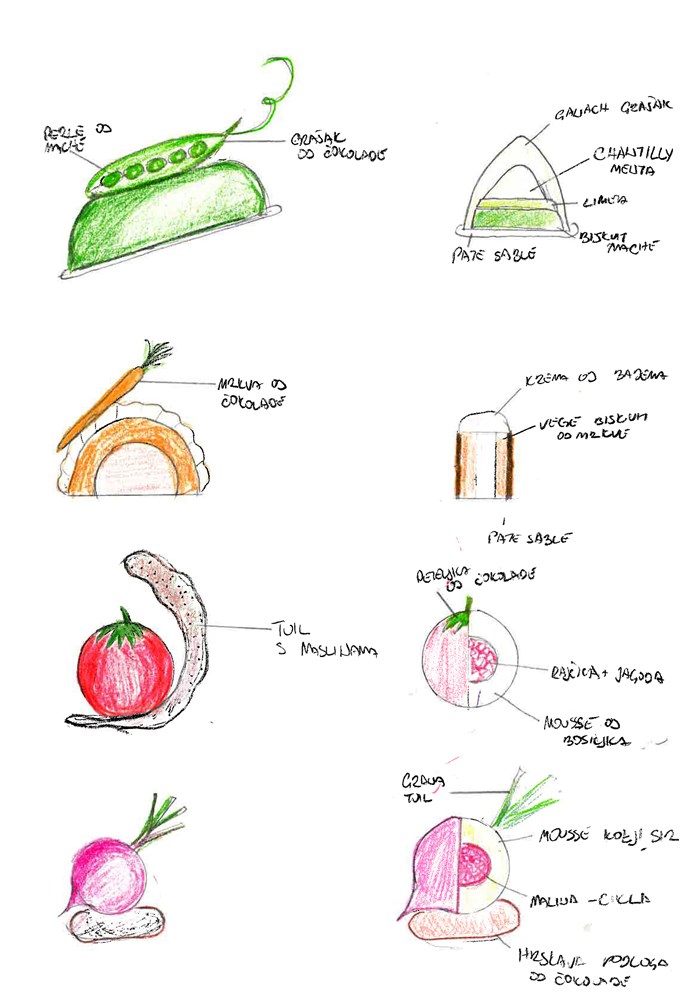 PERLE OD
MACHE
GRAŠAK
OD ČOKOLADE
GANACH GRAŠAK
CHANTILLY
MENTA
LIMETA
BISKUIT
MACHE
PATE SABLÉ
MRKVA OD
ČOKOLADE
KREMA OD BADEMA
VEGE BISKUIT
OD MRKVE
PATE SABLE
TUIL
S MASLINAMA
PETELJKA
OD ČOKOLADE
RAJČICA + JAGODA
MOUSSE OD
BOSILJKA
TUIL
MOUSSE KOZJI SIR
MALINA - CIKLA
HRSKAVA PODLOGA
OD ČOKOLADE